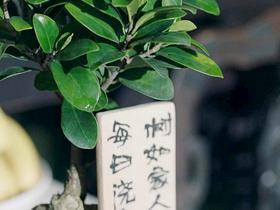 树如家人
每日浇